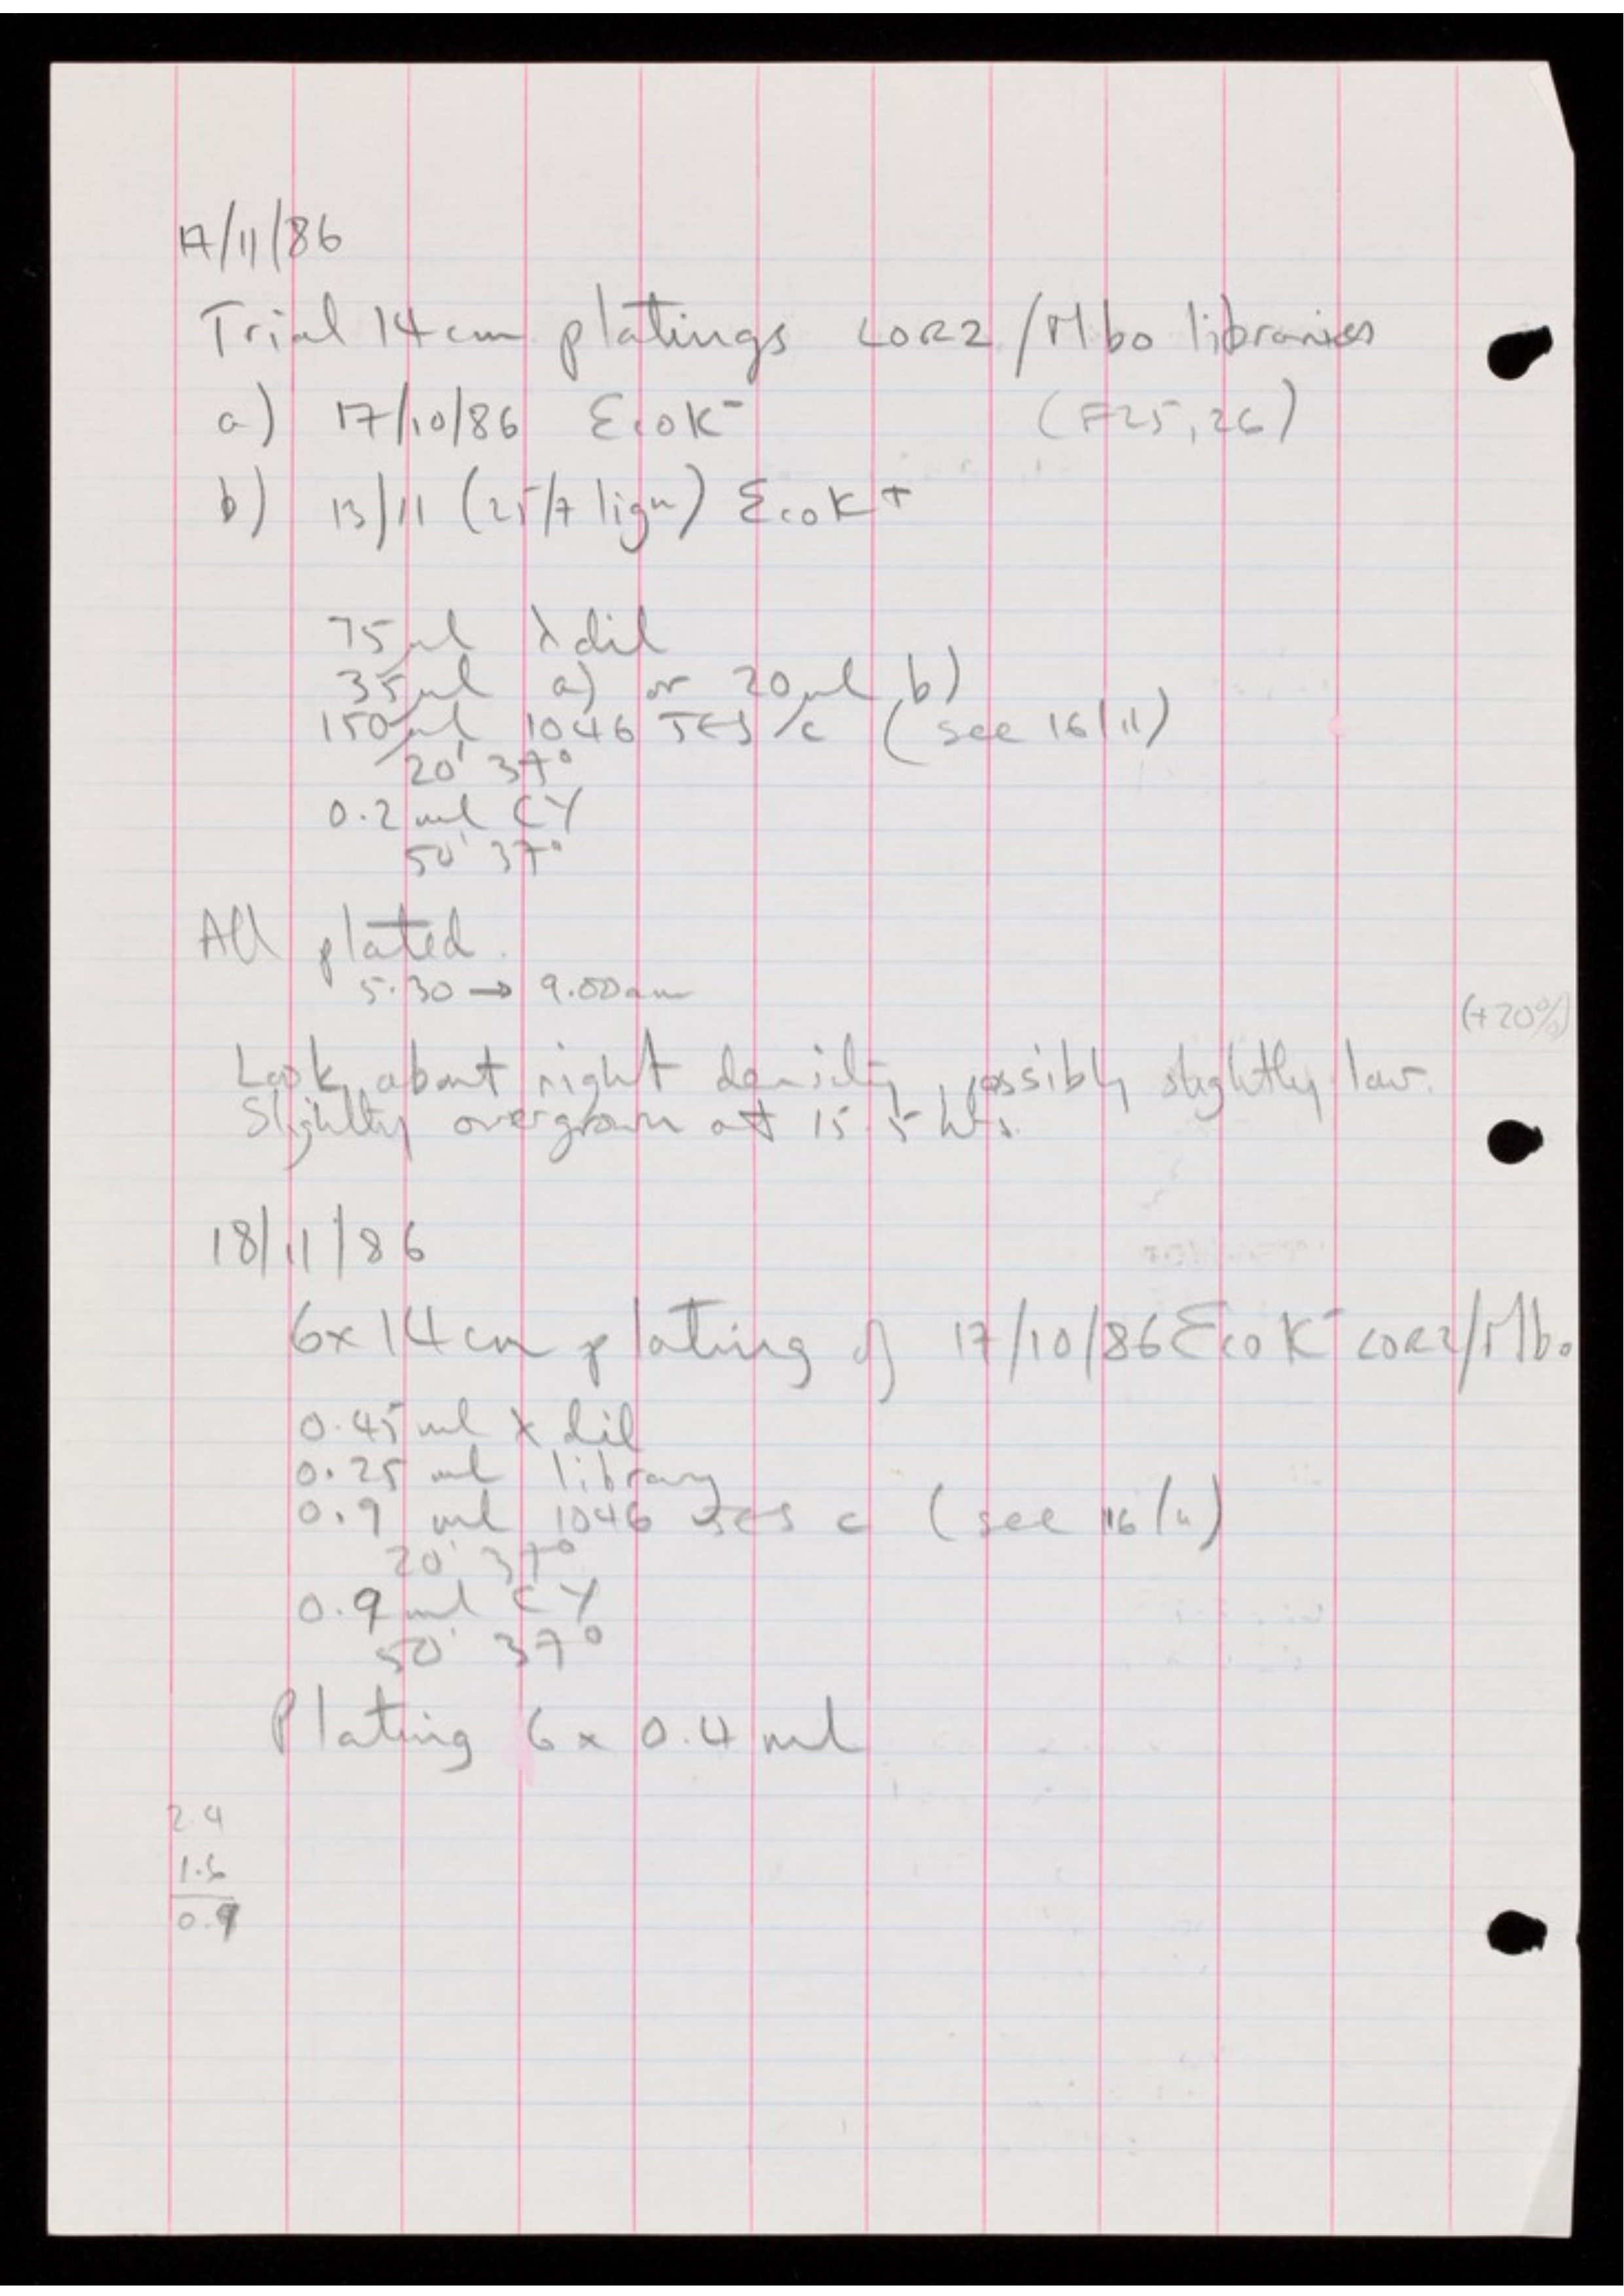 17/11/86
Trial 14cm platings LOR2/Mbo libraries
a) 17/10/86 EcoK⁻ (F25,26)
b) 13/11 (25/7 lign) EcoK⁺
75µl λ dil
35µl a) or 20µl b)
150µl 1046 c (see 16/11)
20' 37°
0.2ml CY
50' 37°
All plated.
5.30 → 9.00am
(+20%)
Look about right density, possibly slightly low.
Slightly overgrown at 15.5 hrs.
18/11/86
6x14cm plating of 17/10/86 EcoK⁻ LOR2/Mbo
0.45ml λ dil
0.25 ml library
0.9 ml 1046 c (see 16/11)
20' 37°
0.9ml CY
50' 37°
Plating 6 x 0.4 ml
2.4
1.6
0.9